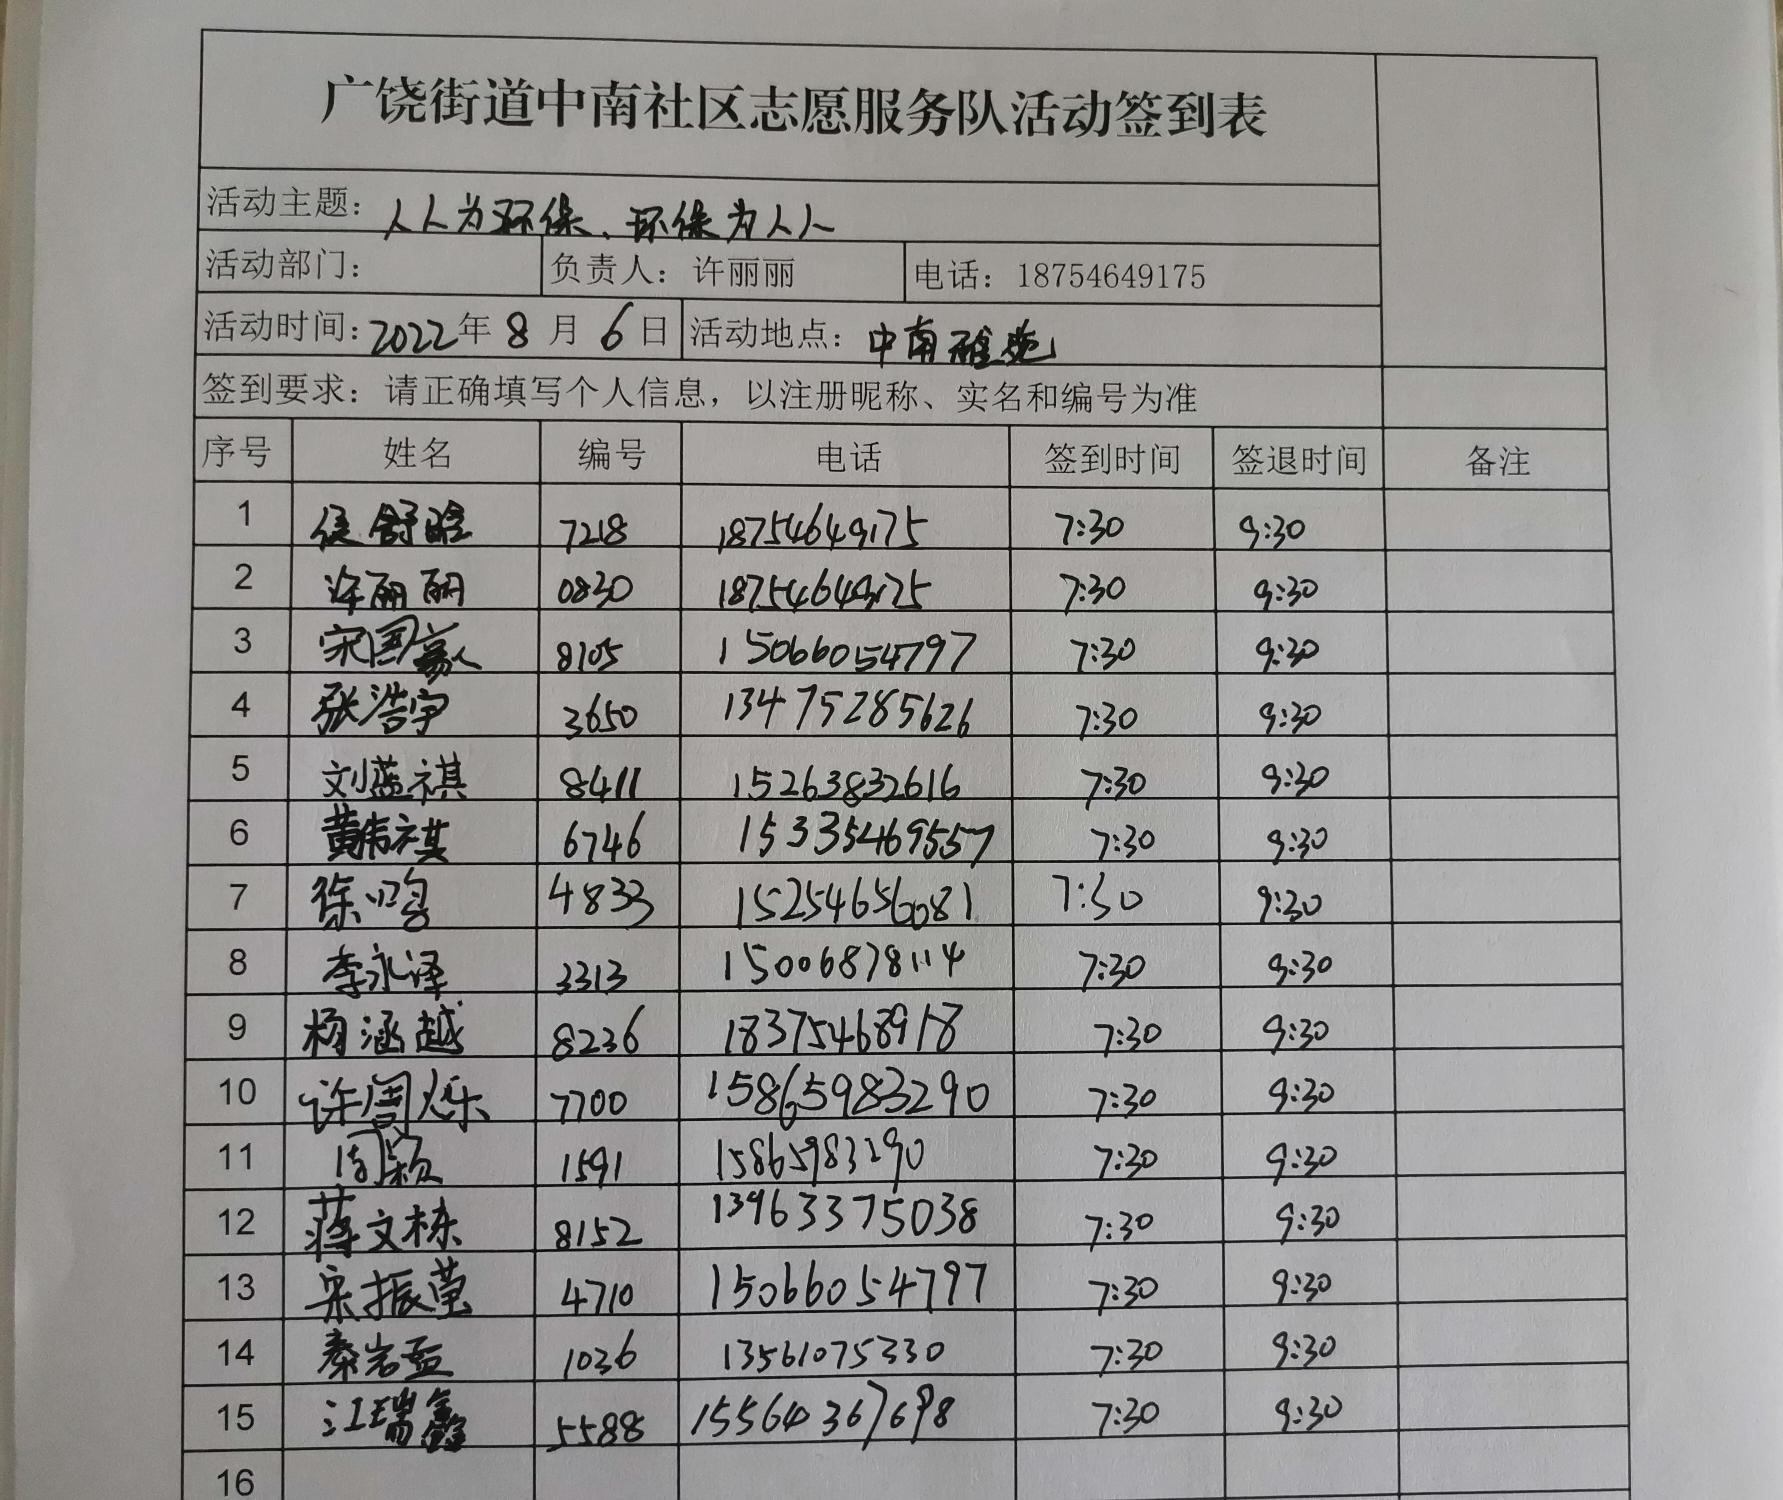 广饶街道中南社区志愿服务队活动签到表
活动主题：人人为环保、环保为人人
活动部门： 负责人：许丽丽 电话：18754649175
活动时间：2022年8月6日 活动地点：中南雅苑
签到要求：请正确填写个人信息，以注册昵称、实名和编号为准
序号 姓名 编号 电话 签到时间 签退时间 备注
1 侯舒晗 7218 18754649175 7:30 9:30
2 许丽丽 0830 18754649175 7:30 9:30
3 宋国 8105 15066054797 7:30 9:30
4 张浩宇 3650 13475285626 7:30 9:30
5 刘蓝祺 8411 15263832616 7:30 9:30
6 黄韦祺 6746 15335469557 7:30 9:30
7 徐鸣 4833 15254656081 7:30 9:30
8 李永泽 3313 15006878114 7:30 9:30
9 杨涵越 8236 18375468918 7:30 9:30
10 许周烁 7700 15865983290 7:30 9:30
11 周颖 1591 15865983290 7:30 9:30
12 蒋文栋 8152 13963375038 7:30 9:30
13 宋振莹 4710 15066054797 7:30 9:30
14 秦岩 1036 13561075330 7:30 9:30
15 江瑞鑫 5588 155640367698 7:30 9:30
16